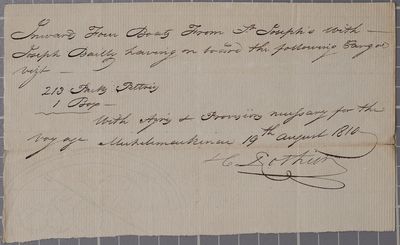 Inward Four Boats From St Joseph's With —
Joseph Bailly having on board the following Cargoe
vizt —
213 Packs Peltries
1 Box —
With Apis & Provisions necessary for the
voyage Michilimackinac 19th August 1810